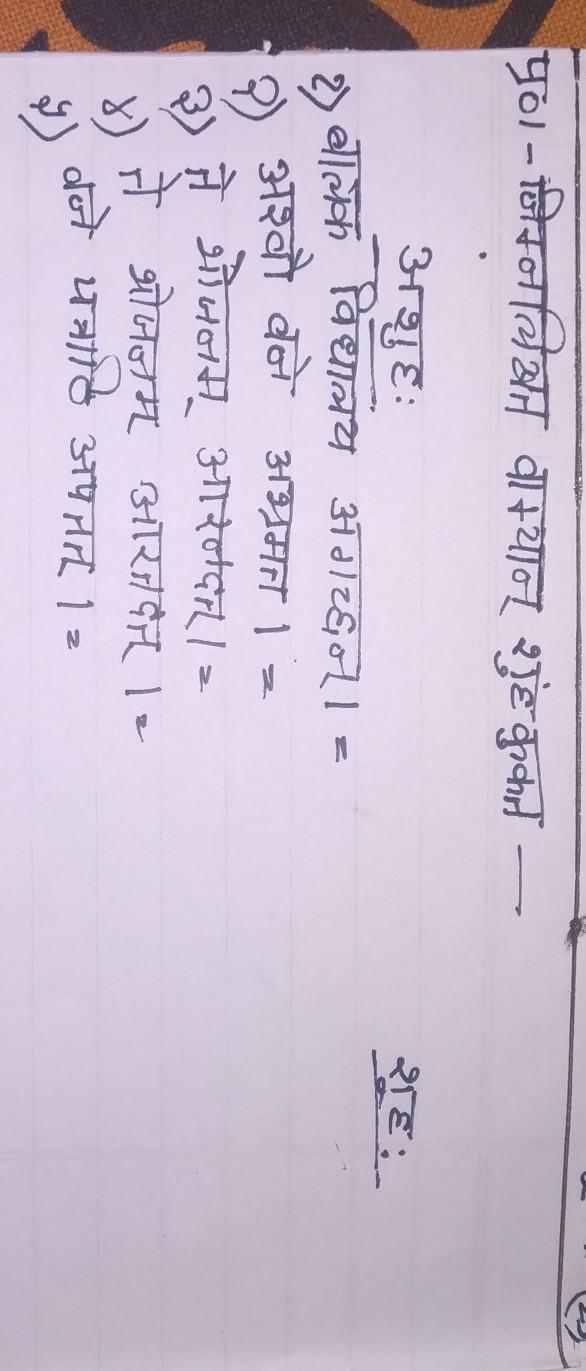 प्र०१ - निम्नलिखित वाक्यान् शुद्धं कुरुत —
अशुद्धः शुद्धः
१) बालक विद्यालय अगच्छन् । =
२) अश्वो वने अभ्रमत । =
३) ते भोजनम् अखादत् । =
४) ते भोजनम्
५) वने पत्राणि अपतत् । =